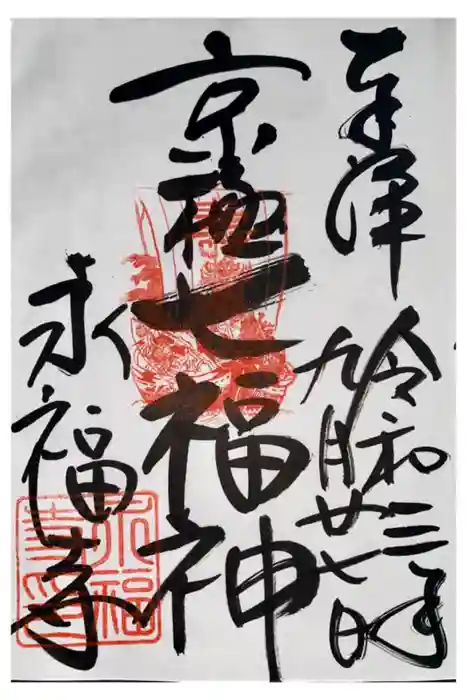 奉拝
令和三年
九月廿七日
京極七福神
永福寺
永福
寺印